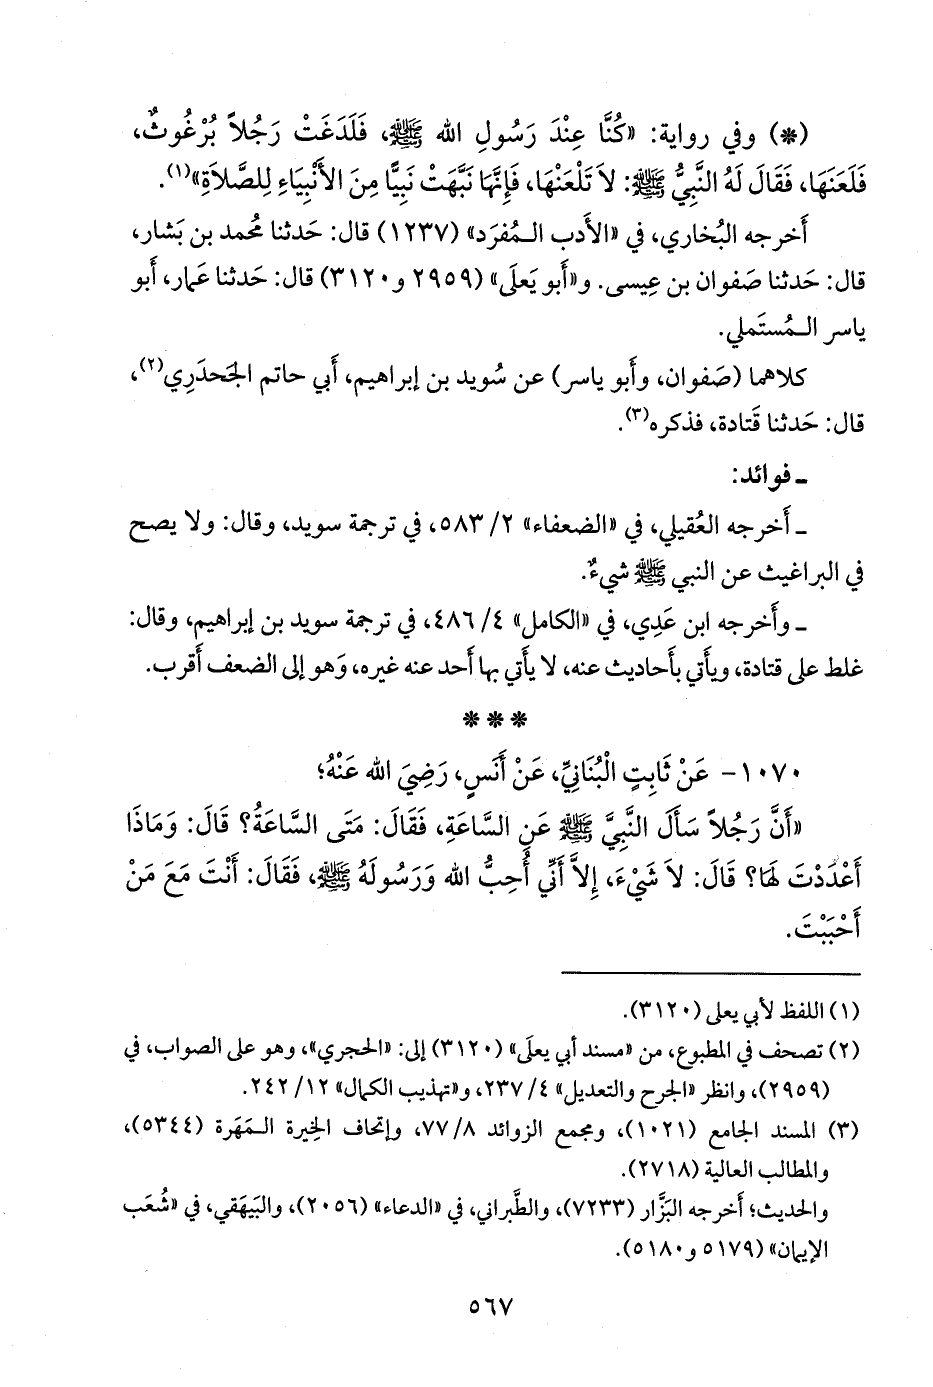 (*) وفي رواية: «كُنَّا عِنْدَ رَسُولِ الله ﷺ، فَلَدَغَتْ رَجُلاً بُرْغُوثٌ،
فَلَعَنَهَا، فَقَالَ لَهُ النَّبِيُّ ﷺ: لاَ تَلْعَنْهَا، فَإِنَّهَا نَبَّهَتْ نَبِيًّا مِنَ الأَنْبِيَاءِ لِلصَّلاَةِ»(١).
أَخرجه البُخاري، في «الأَدب الـمُفرَد» (١٢٣٧) قال: حَدثنا مُحمد بن بَشار،
قال: حَدثنا صَفوان بن عِيسى. و«أَبو يَعلَى» (٢٩٥٩ و٣١٢٠) قال: حَدثنا عَمار، أَبو
ياسر الـمُستَملي.
كلاهما (صَفوان، وأَبو ياسر) عن سُويد بن إبراهيم، أَبي حاتم الجَحدَري(٢)،
قال: حَدثنا قَتادة، فذكره(٣).
ـ فوائد:
ـ أَخرجه العُقيلي، في «الضعفاء» ٢/ ٥٨٣، في ترجمة سويد، وقال: ولا يصح
في البراغيث عن النبي ﷺ شيءٌ.
ـ وأَخرجه ابن عَدِي، في «الكامل» ٤/ ٤٨٦، في ترجمة سويد بن إبراهيم، وقال:
غلط على قتادة، ويأتي بأَحاديث عنه، لا يأتي بها أَحد عنه غيره، وَهو إلى الضعف أَقرب.
* * *
١٠٧٠- عَنْ ثَابِتٍ الْبُنَانِيِّ، عَنْ أَنَسٍ، رَضِيَ الله عَنْهُ؛
«أَنَّ رَجُلاً سَأَلَ النَّبِيَّ ﷺ عَنِ السَّاعَةِ، فَقَالَ: مَتَى السَّاعَةُ؟ قَالَ: وَمَاذَا
أَعْدَدْتَ لَهَا؟ قَالَ: لاَ شَيْءَ، إِلاَّ أَنِّي أُحِبُّ الله وَرَسُولَهُ ﷺ، فَقَالَ: أَنْتَ مَعَ مَنْ
أَحْبَبْتَ.
(١) اللفظ لأبي يعلى (٣١٢٠).
(٢) تصحف في المطبوع، من «مسند أبي يعلَى» (٣١٢٠) إلى: «الحجري»، وهو على الصواب، في
(٢٩٥٩)، وانظر «الجرح والتعديل» ٤/ ٢٣٧، و«تهذيب الكمال» ١٢/ ٢٤٢.
(٣) المسند الجامع (١٠٢١)، ومجمع الزوائد ٨/ ٧٧، وإتحاف الخِيرة الـمَهَرة (٥٣٤٤)،
والمطالب العالية (٢٧١٨).
والحديث؛ أخرجه البَزَّار (٧٢٣٣)، والطَّبراني، في «الدعاء» (٢٠٥٦)، والبَيهَقي، في «شُعَب
الإيمان» (٥١٧٩ و٥١٨٠).
٥٦٧